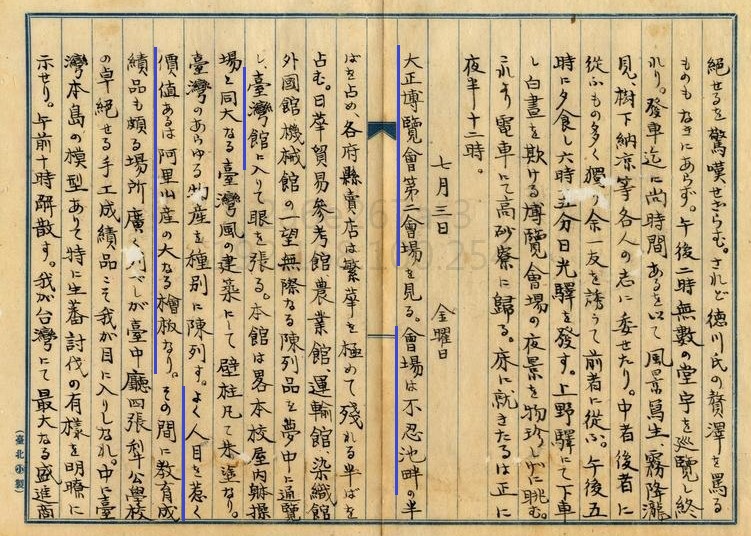 絶せるを驚嘆せざらむ。されど徳川氏の贅澤を罵る
ものもなきにあらず。午後二時無数の堂宇を巡覧し終
れり。発車迄に尚時間あるを以て風景寫生、霧降瀧
見、樹下納凉等各人の志に委せたり。中者後者に
從ふもの多く獨り余一友を誘うて前者に從ふ。午後五
時に夕食し六時五分日光驛を發す。上野驛にて下車
し白晝を欺ける博覧會場の夜景を物珍しげに眺む。
これより電車にて高砂寮に歸る。床に就きたるは正に
夜半十二時。
七月三日 金曜日
大正博覧會第二會場を見る。會場は不忍池畔の半
ばを占め、各府縣賣店は繁華を極めて残れる半ばを
占む。日華貿易參考館、農業館、運輸館、染織館
外國館機械館の一望無際なる陳列品を夢中に通覧
し、臺灣館に入りて眼を張る。本館は畧本校屋内躰操
場と同大なる臺灣風の建築にして壁柱凡て朱塗なり。
臺灣のあらゆる物産を種別に陳列す。よく人目を惹く
價値あるは阿里山産の大なる檜板なり。その間に教育成
績品も頗る場所廣く列べしが臺中廳四張犁公學校
の卓絶せる手工成績品こそ我が目に入りしなれ。中に臺
灣本島の模型ありて特に生蕃討伐の有樣を明瞭に
示せり。午前十時解散す。我が台灣にて最大なる盛進商
(臺北小製)